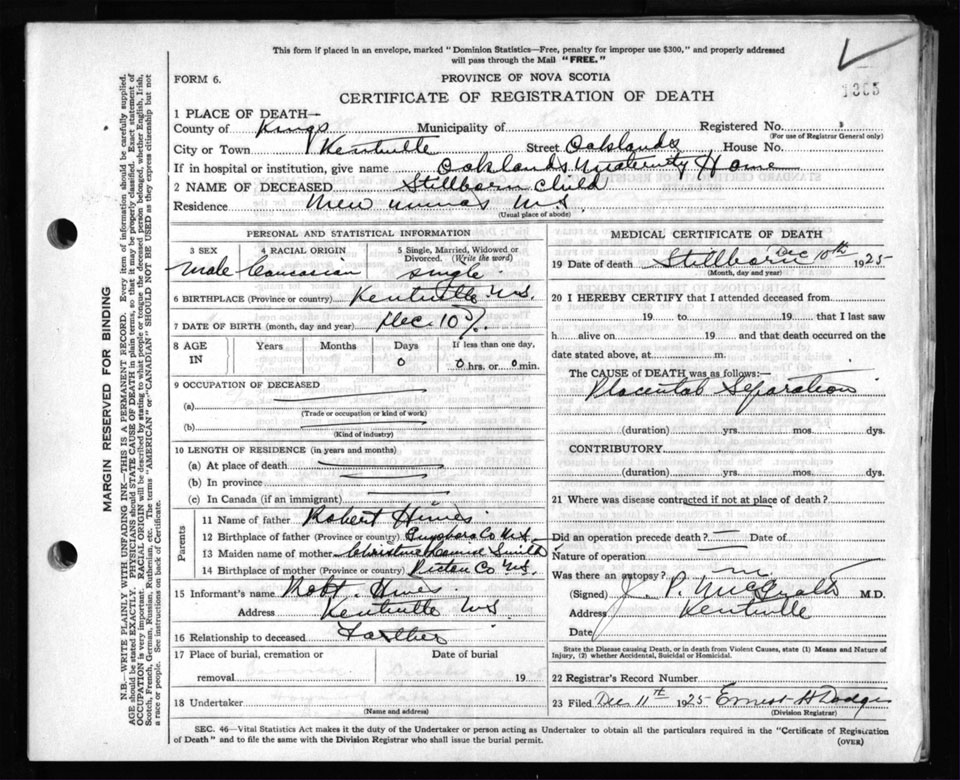 This form if placed in an envelope, marked "Dominion Statistics—Free, penalty for improper use $300," and properly addressed
will pass through the Mail "FREE."
FORM 6.
PROVINCE OF NOVA SCOTIA
1305
CERTIFICATE OF REGISTRATION OF DEATH
1 PLACE OF DEATH—
County of Kings Municipality of Registered No.
(For use of Registrar General only)
City or Town Kentville Street Oaklands House No.
If in hospital or institution, give name Oaklands Maternity Home
2 NAME OF DECEASED Stillborn Child
Residence New Minas N.S.
(Usual place of abode)
PERSONAL AND STATISTICAL INFORMATION
3 SEX 4 RACIAL ORIGIN 5 Single, Married, Widowed or Divorced. (Write the word)
Male Caucasian Single
6 BIRTHPLACE (Province or country) Kentville N.S.
7 DATE OF BIRTH (month, day and year) Dec. 10
8 AGE IN Years Months Days If less than one day,
0 0 hrs. or 0 min.
9 OCCUPATION OF DECEASED
(a)
(Trade or occupation or kind of work)
(b)
(Kind of industry)
10 LENGTH OF RESIDENCE (in years and months)
(a) At place of death
(b) In province
(c) In Canada (if an immigrant)
Parents
11 Name of father Robert Hines
12 Birthplace of father (Province or country) Co N.S.
13 Maiden name of mother Christine Smith
14 Birthplace of mother (Province or country) Pictou Co N.S.
15 Informant's name Robt. Hines
Address Kentville N.S.
16 Relationship to deceased Farther
17 Place of burial, cremation or removal Date of burial
19
18 Undertaker
(Name and address)
MEDICAL CERTIFICATE OF DEATH
19 Date of death Stillborn Dec 10th 1925
(Month, day and year)
20 I HEREBY CERTIFY that I attended deceased from
19 to 19 that I last saw
h alive on 19 and that death occurred on the
date stated above, at m.
The CAUSE of DEATH was as follows:
Placental Separation
(duration) yrs. mos. dys.
CONTRIBUTORY.
(duration) yrs. mos. dys.
21 Where was disease contracted if not at place of death?
Did an operation precede death? Date of
Nature of operation
Was there an autopsy?
(Signed) J. P. McGrath M.D.
Address Kentville
Date
State the Disease causing Death, or in death from Violent Causes, state (1) Means and Nature of
Injury, (2) whether Accidental, Suicidal or Homicidal.
22 Registrar's Record Number
23 Filed Dec 11th 1925 Ernest H Dodge
(Division Registrar)
SEC. 46—Vital Statistics Act makes it the duty of the Undertaker or person acting as Undertaker to obtain all the particulars required in the "Certificate of Registration
of Death" and to file the same with the Division Registrar who shall issue the burial permit.
(OVER)
MARGIN RESERVED FOR BINDING
N.B.—WRITE PLAINLY WITH UNFADING INK—THIS IS A PERMANENT RECORD. Every item of information should be carefully supplied.
AGE should be stated EXACTLY. PHYSICIANS should STATE CAUSE OF DEATH in plain terms, so that it may be properly classified. Exact statement of
OCCUPATION is very important. RACIAL ORIGIN will be described by stating to what people or tongue the deceased person belonged, whether English, Irish,
Scotch, French, German, Russian, Ruthenian, etc. The terms "AMERICAN" or "CANADIAN" SHOULD NOT BE USED as they express citizenship but not
a race or people. See instructions on back of Certificate.